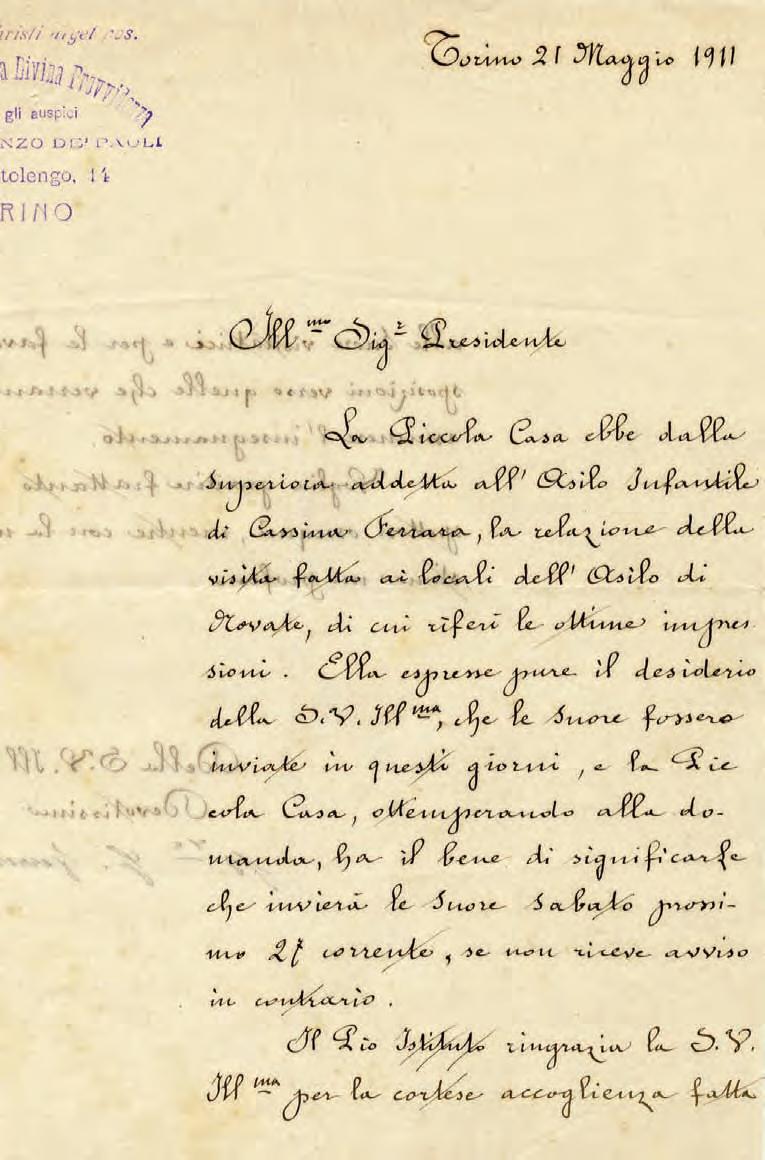 Christi urget nos.
a Divina Provvidenza
gli auspici
NZO DE' PAOLI
tolengo, 14
RINO
Torino 21 Maggio 1911
Ill.mo Sig.r Presidente
La Piccola Casa ebbe dalla
Superiora addetta all' Asilo Infantile
di Cassina Ferrara, la relazione della
visita fatta ai locali dell' Asilo di
Novate, di cui riferì le ottime impres
sioni. Ella espresse pure il desiderio
della S.V. Ill.ma, che le Suore fossero
inviate in questi giorni, e la Pic
cola Casa, ottemperando alla do-
manda, ha il bene di significarle
che invierà le Suore sabato prossi-
mo 27 corrente, se non riceve avviso
in contrario.
Il Pio Istituto ringrazia la S.V.
Ill.ma per la cortese accoglienza fatta